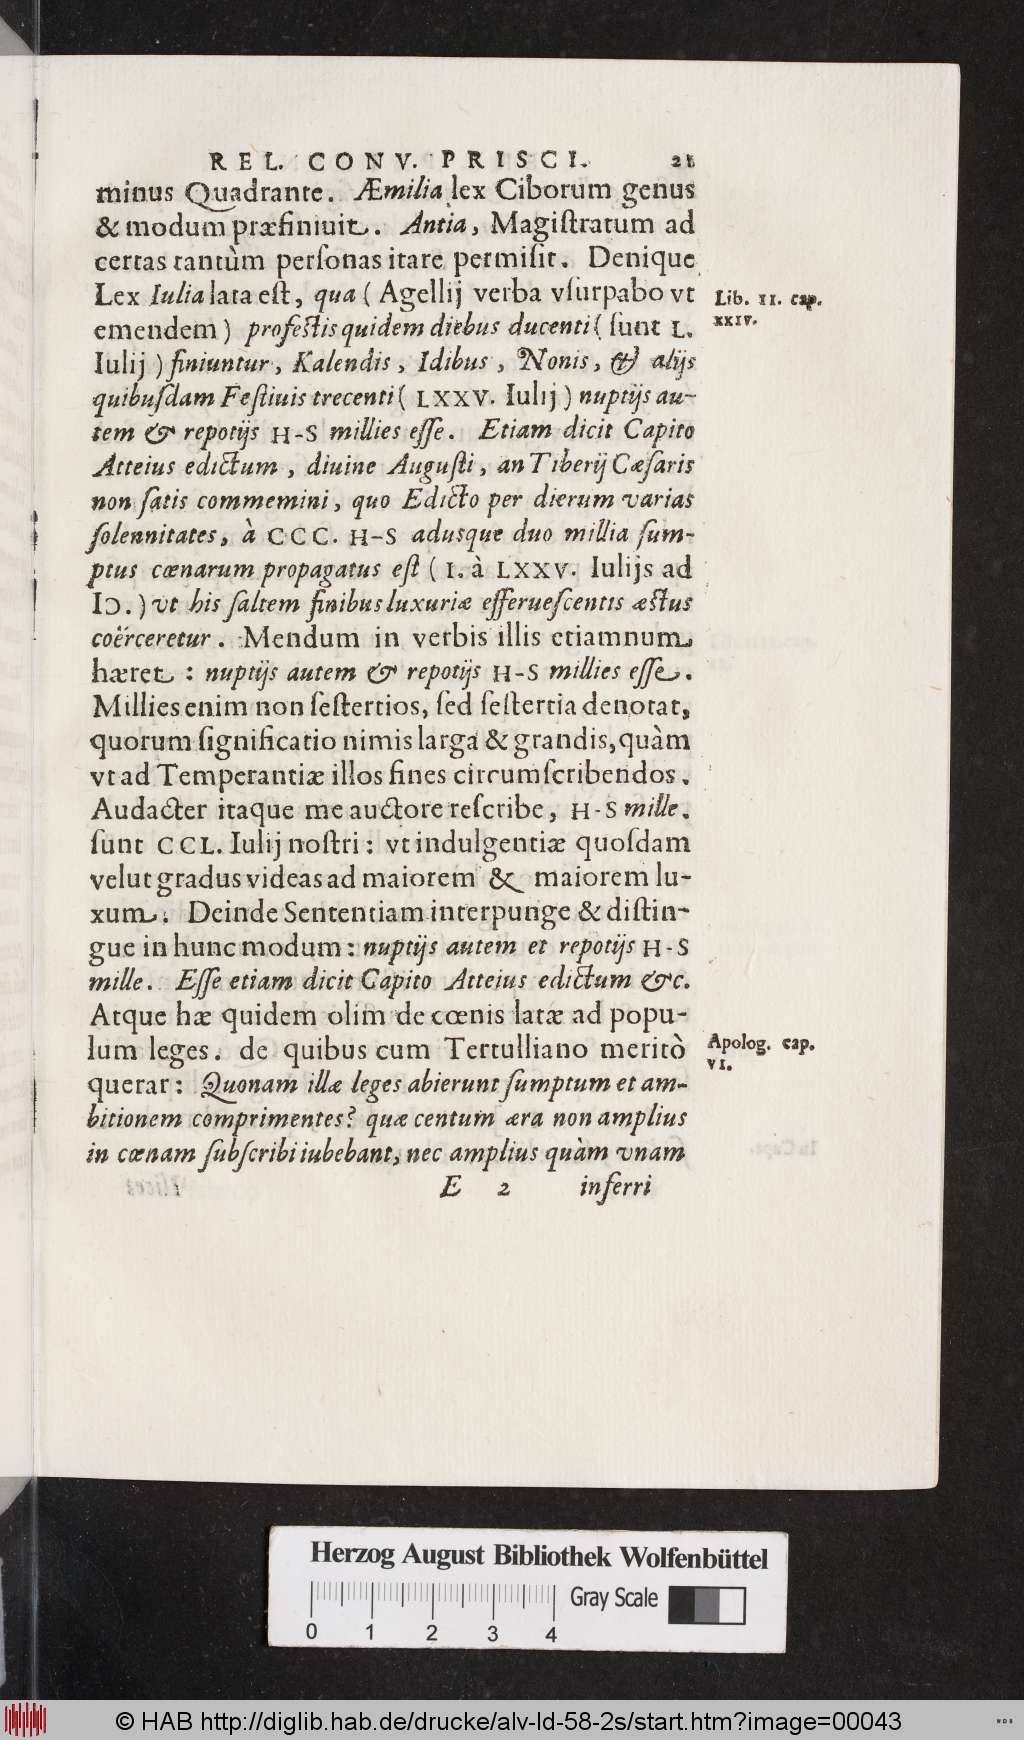 REL. CONV. PRISCI. 21
minus Quadrante. Æmilia lex Ciborum genus
& modum præfiniuit. Antia, Magiſtratum ad
certas tantùm perſonas itare permiſit. Denique
Lex Iulia lata eſt, qua ( Agellij verba vſurpabo vt
emendem ) profeſtis quidem diebus ducenti ( ſunt L.
Iulij ) finiuntur, Kalendis, Idibus, Nonis, & alijs
quibuſdam Feſtiuis trecenti ( LXXV. Iulij ) nuptijs au-
tem & repotijs H-S millies eſſe. Etiam dicit Capito
Atteius edictum, diuine Auguſti, an Tiberij Cæſaris
non ſatis commemini, quo Edicto per dierum varias
ſolennitates, à CCC. H-S adusque duo millia ſum-
ptus cœnarum propagatus eſt ( I. à LXXV. Iulijs ad
IↃ. ) vt his ſaltem finibus luxuriæ efferueſcentis æſtus
coërceretur. Mendum in verbis illis etiamnum
hæret : nuptijs autem & repotijs H-S millies eſſe.
Millies enim non ſeſtertios, ſed ſeſtertia denotat,
quorum ſignificatio nimis larga & grandis, quàm
vt ad Temperantiæ illos fines circumſcribendos.
Audacter itaque me auctore reſcribe, H-S mille.
ſunt CCL. Iulij noſtri : vt indulgentiæ quoſdam
velut gradus videas ad maiorem & maiorem lu-
xum. Deinde Sententiam interpunge & diſtin-
gue in hunc modum : nuptijs autem et repotijs H-S
mille. Eſſe etiam dicit Capito Atteius edictum &c.
Atque hæ quidem olim de cœnis latæ ad popu-
lum leges. de quibus cum Tertulliano meritò
querar : Quonam illæ leges abierunt ſumptum et am-
bitionem comprimentes? quæ centum æra non amplius
in cœnam ſubſcribi iubebant, nec amplius quàm vnam
E 2 inferri
Lib. II. cap.
XXIV.
Apolog. cap.
VI.
Herzog August Bibliothek Wolfenbüttel
Gray Scale
0 1 2 3 4
© HAB http://diglib.hab.de/drucke/alv-ld-58-2s/start.htm?image=00043